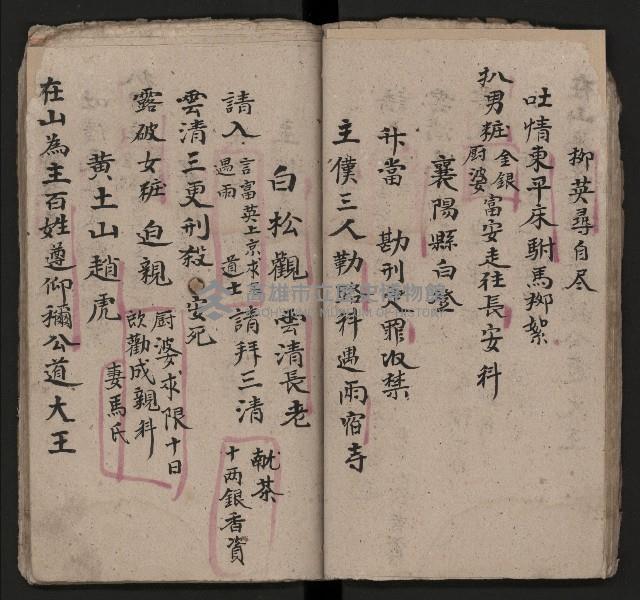 柳英尋自尽
吐情東平床駙馬柳絮
扒男粧 金銀 厨婆 富安走往長安科
襄陽縣白登
升當 勘刑 罪收禁
主僕三人勤路科遇雨宿寺
白松觀 雲清長老
請入 言富英上京求 遇雨 道士 請拜三清 献茶 十两銀香資
雲清三更刑殺 安死
露破女粧 迫親 厨婆求限十日 欣勸成親科
黄土山趙虎 妻馬氏
在山為主百姓尊仰稱公道大王
高雄市立歷史博物館
KAOHSIUNG MUSEUM OF HISTORY